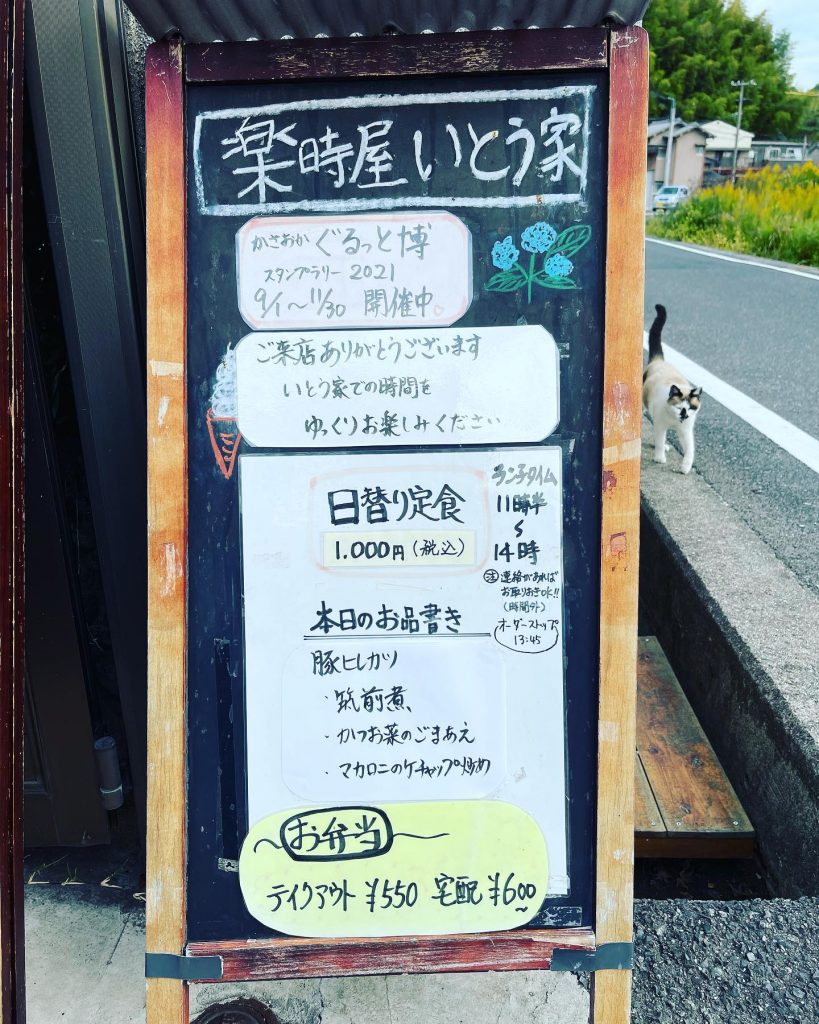 楽時屋 いとう家
かさおか ぐるっと博
スタンプラリー 2021
9/1〜11/30 開催中。
ご来店ありがとうございます
いとう家での時間を
ゆっくりお楽しみください
日替り定食
1.000円(税込)
ランチタイム
11時半
〜
14時
注 連絡があれば
お取りおきok!!
(時間外)
オーダーストップ
13:45
本日のお品書き
豚ヒレカツ
・筑前煮、
・かつお菜のごまあえ
・マカロニのケチャップ炒め
〜お弁当〜
テイクアウト ¥550 宅配 ¥600〜